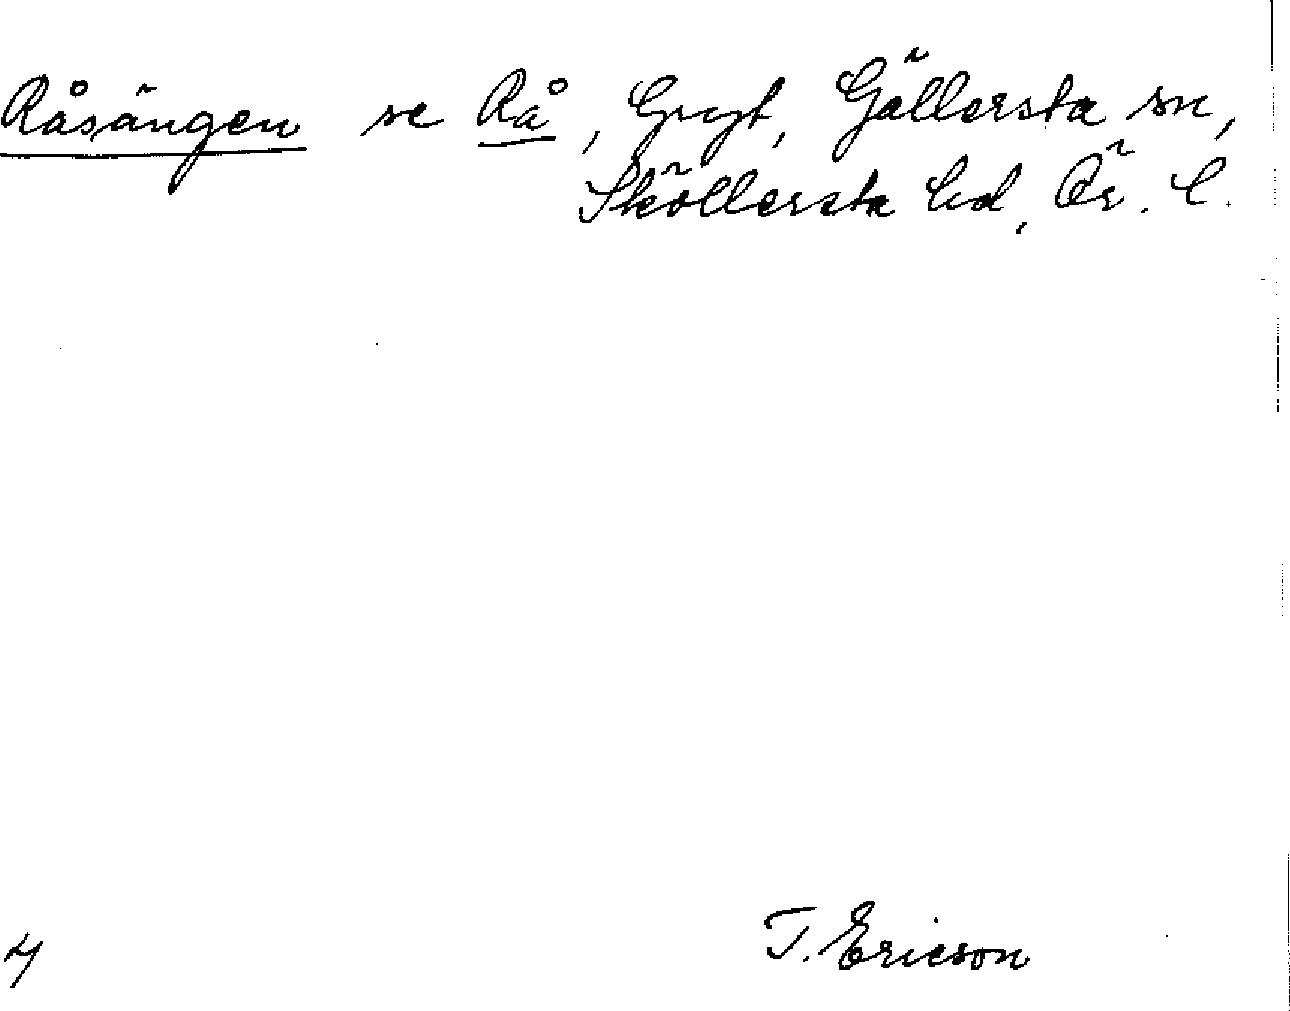 Råsängen se Rå, Grgt, Gällersta sn,
Sköllersta hd, Ör. l.
T. Ericson